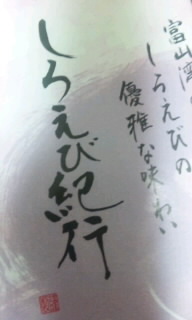 富山湾
しろえびの
優雅な味わい
しろえび紀行